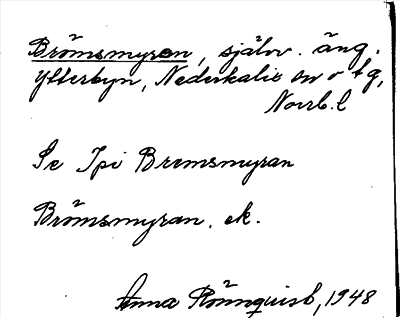 Brömsmyran, själv. äng.
Ytterbyn, Nederkalix sn o tg,
Norrb. l
Se Ipi Bremsmyran
Brömsmyran. ek.
Anna Rönnquist, 1948